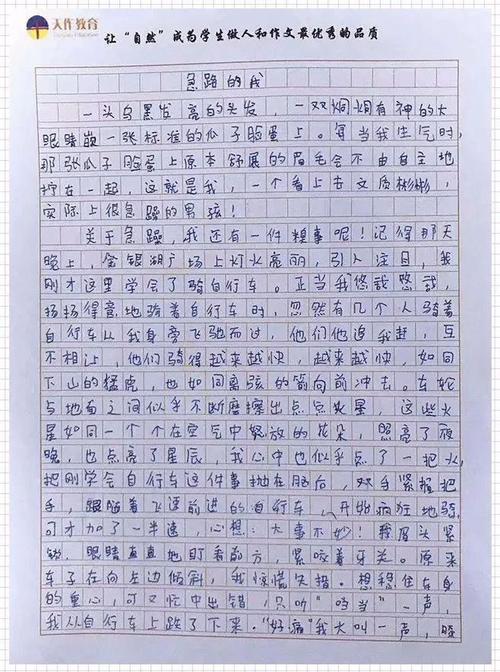 天作教育
让“自然”成为学生做人和作文最优秀的品质
急路的我
一头乌黑发亮的头发，一双炯炯有神的大
眼睛嵌一张标准的瓜子脸蛋上。每当我生气时，
那张瓜子脸蛋上原本舒展的眉毛会不由自主地
拧在一起，这就是我，一个看上去文质彬彬，
实际上很急躁的男孩！
关于急躁，我还有一件糗事呢！记得那天
晚上，金银湖广场上灯火亮丽，引人注目，我
刚才这里学会了骑自行车。正当我悠哉悠哉，
扬扬得意地骑着自行车时，忽然有几个人骑着
自行车从我身旁飞驰而过，他们你追我赶，互
不相让，他们骑得越来越快，越来越快，如同
下山的猛虎，也如同离弦的箭向前冲去。车轮
与地面之间似乎不断磨擦出点点火星，这些火
星如同一个个在空气中怒放的花朵，照亮了夜
晚，也点亮了星辰，我心中也似乎点了一把火，
把刚学会自行车这件事抛在脑后，双手紧握把
手，跟随着飞速前进的自行车，开始疯狂地骑，
可才加了一半速，心想：大事不妙！我眉头紧
锁，眼睛直直地盯看前方，紧咬着牙关。原来
车子在向左边倾斜，我惊慌失措。想稳住车身
的重心，可又忙中出错，只听“咚当”一声，
我从自行车上跌了下来。“好痛”我大叫一声，